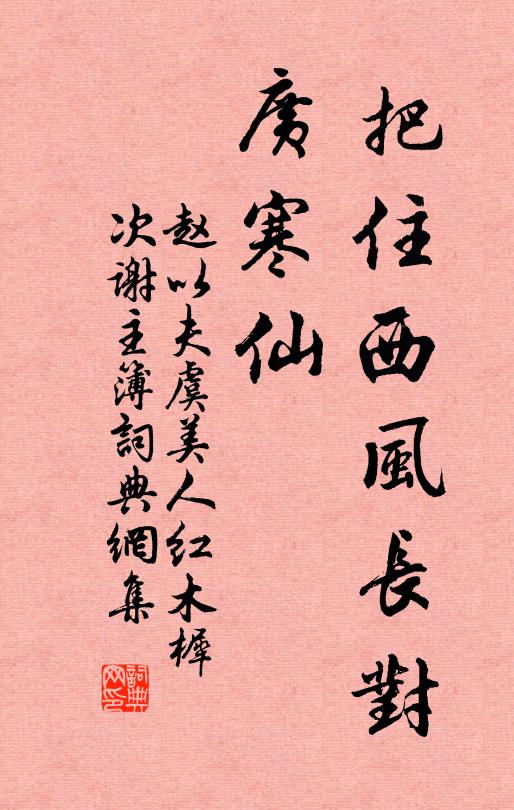 把住西風長對
廣寒仙
赵以夫虞美人红木樨
次谢主簿詞典網集
詞典网印